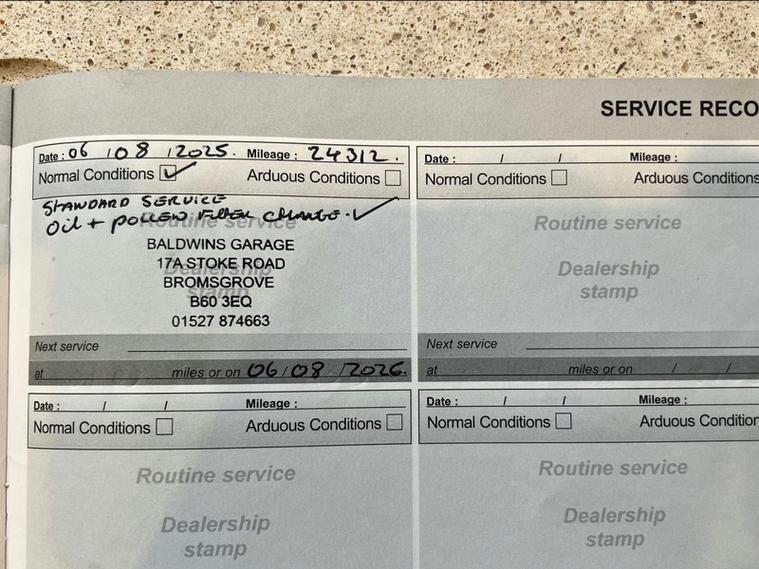 SERVICE RECO
Date : 06 / 08 / 2025. Mileage : 24312.
Normal Conditions Arduous Conditions
STANDARD SERVICE
Oil + POLLEN FILTER CHANGE.
Routine service
BALDWINS GARAGE
17A STOKE ROAD
BROMSGROVE
B60 3EQ
01527 874663
Dealership
stamp
Next service
at miles or on 06 / 08 / 2026.
Date : / / Mileage :
Normal Conditions Arduous Conditions
Routine service
Dealership
stamp
Next service
at miles or on / /
Date : / / Mileage :
Normal Conditions Arduous Conditions
Routine service
Dealership
stamp
Date : / / Mileage :
Normal Conditions Arduous Condition
Routine service
Dealership
stamp